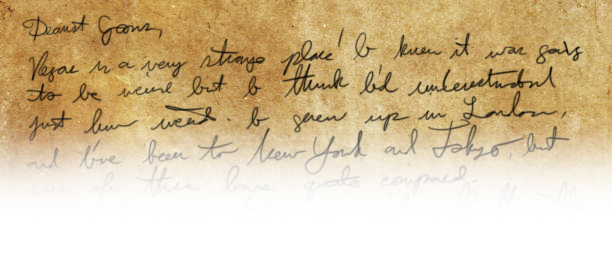 Dearest
Vegas is a very strange place! I knew it was going
to be weird but I think I'd underestimated
just how weird. I grew up in London,
and I've been to New York and Tokyo, but
none of them quite compared.